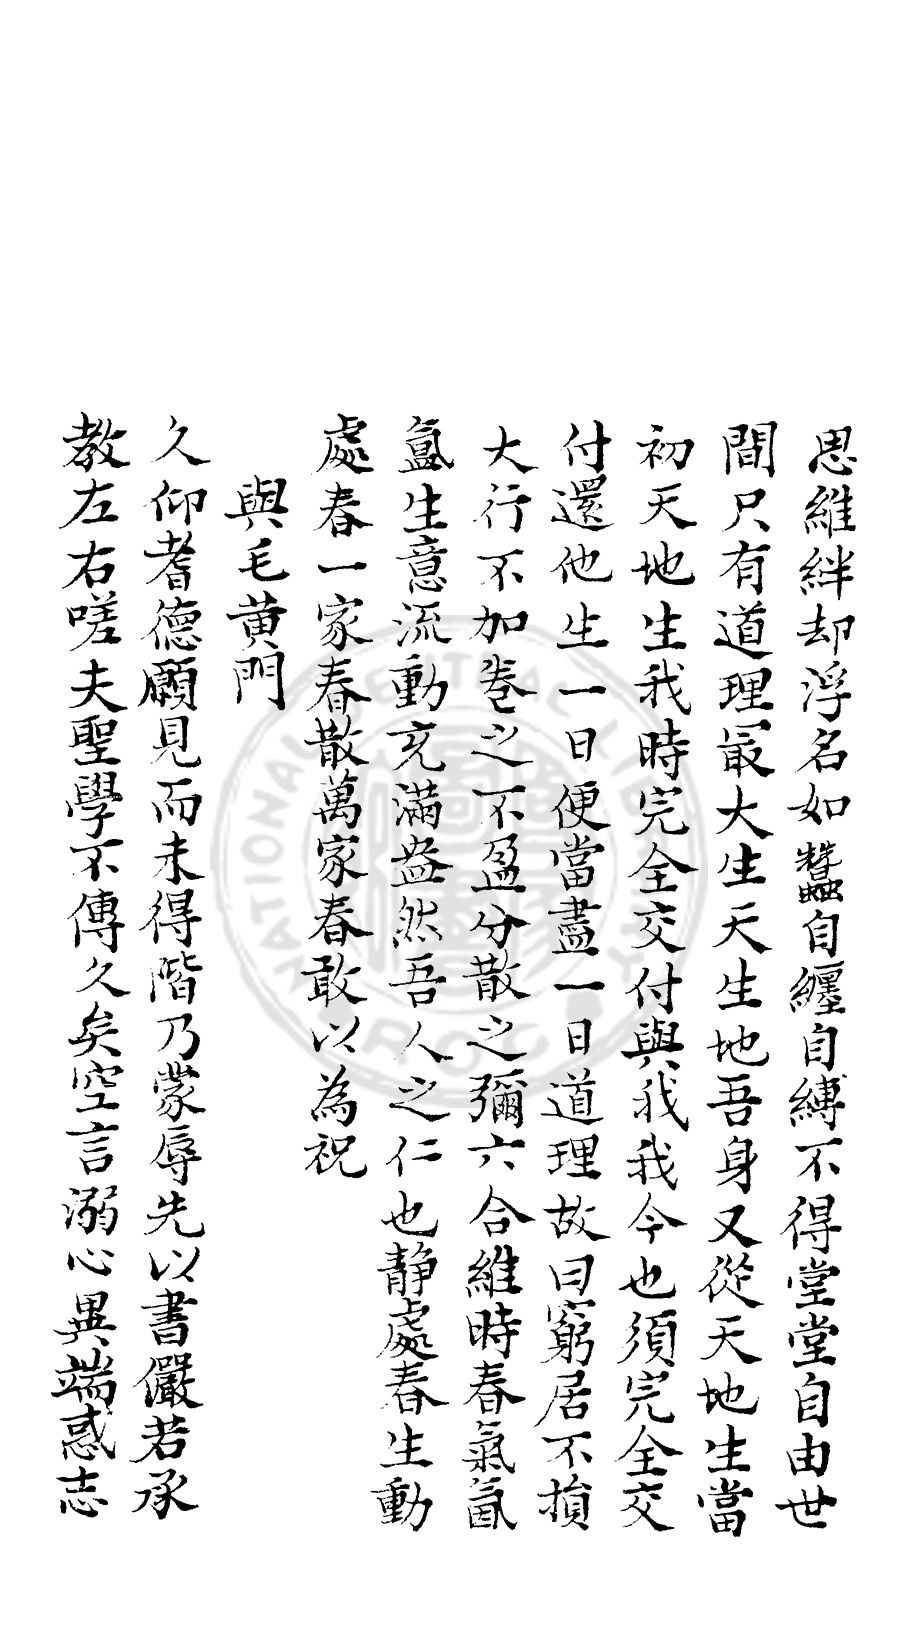 思維絆却浮名如蠶自纏自縛不得堂堂自由世
間只有道理最大生天生地吾身又從天地生當
初天地生我時完全交付與我我今也須完全交
付還他生一日便當盡一日道理故曰窮居不損
大行不加卷之不盈分散之彌六合維時春氣氤
氳生意流動充滿盎然吾人之仁也靜處春生動
處春一家春散萬家春敢以為祝
與毛黃門
久仰耆德願見而未得階乃蒙辱先以書儼若承
教左右嗟夫聖學不傳久矣空言溺心異端惑志
NATIONAL CENTRAL LIBRARY
R.O.C.